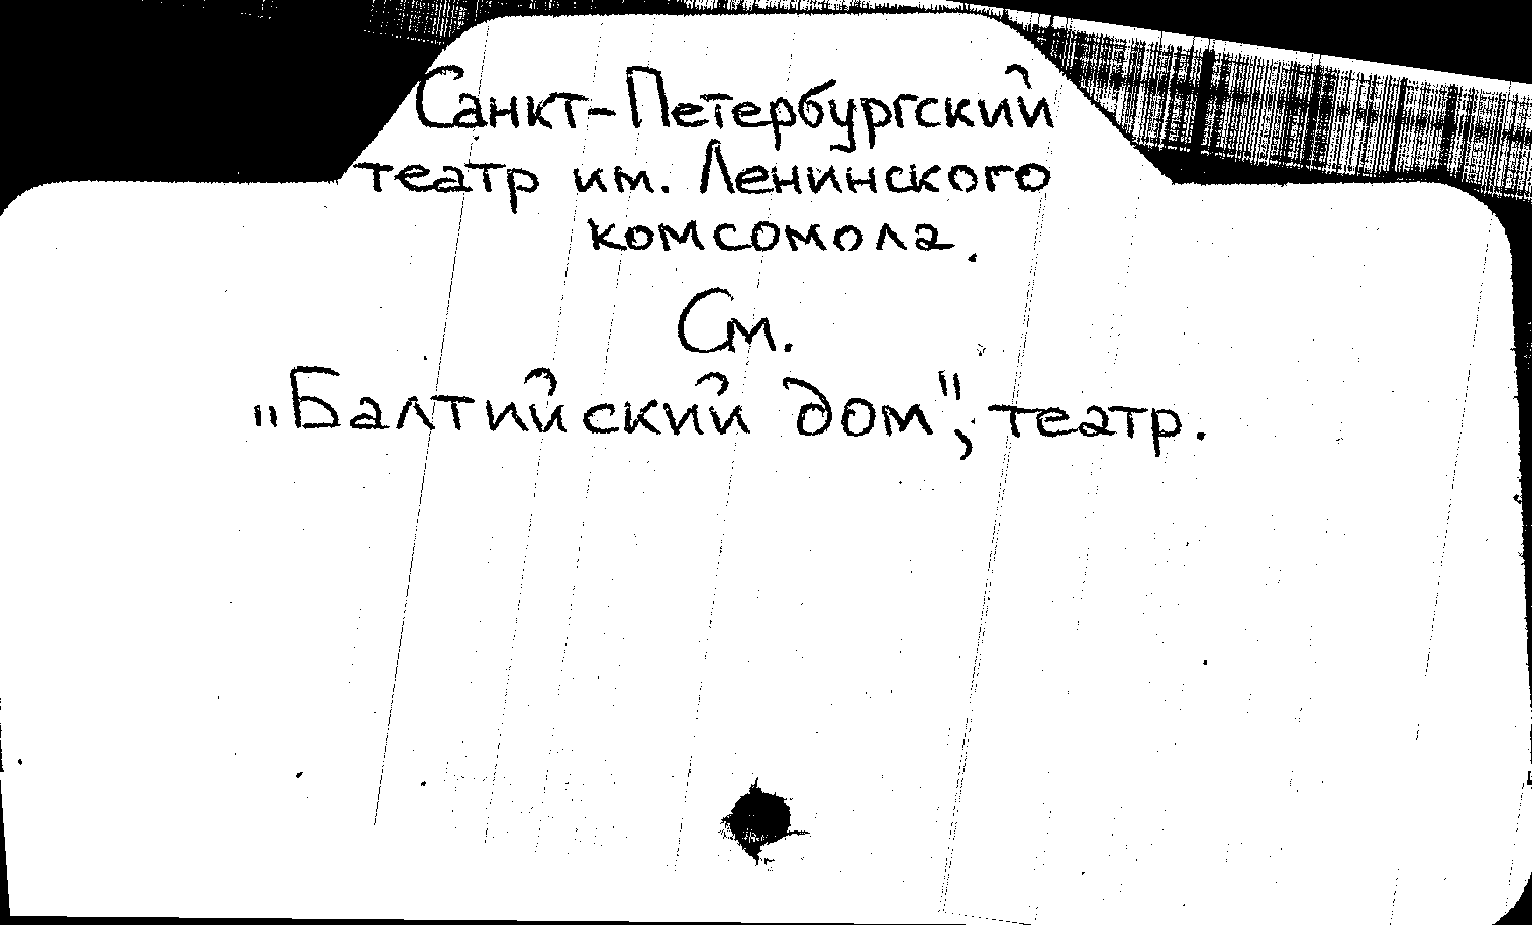 Санкт-Петербургский
театр им. Ленинского
комсомола.
См.
"Балтийский дом", театр.